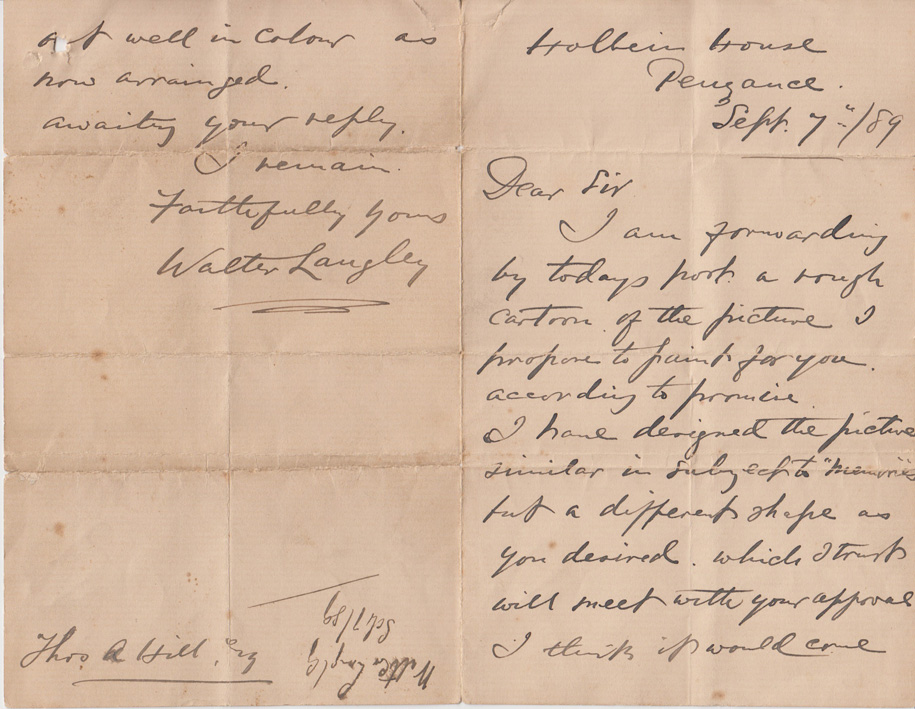 Holbein House
Penzance.
Sept. 7th/89
Dear Sir
I am forwarding
by todays post a rough
cartoon of the picture I
propose to paint for you.
according to promise.
I have designed the picture
similar in subject to "Memories"
but a different shape as
you desired. which I trust
will meet with your approval
I think it would come
out well in colour as
now arranged.
awaiting your reply.
I remain.
Faithfully yours
Walter Langley
Thos A Hill, Esq
Walter Langley
Sept 7/89